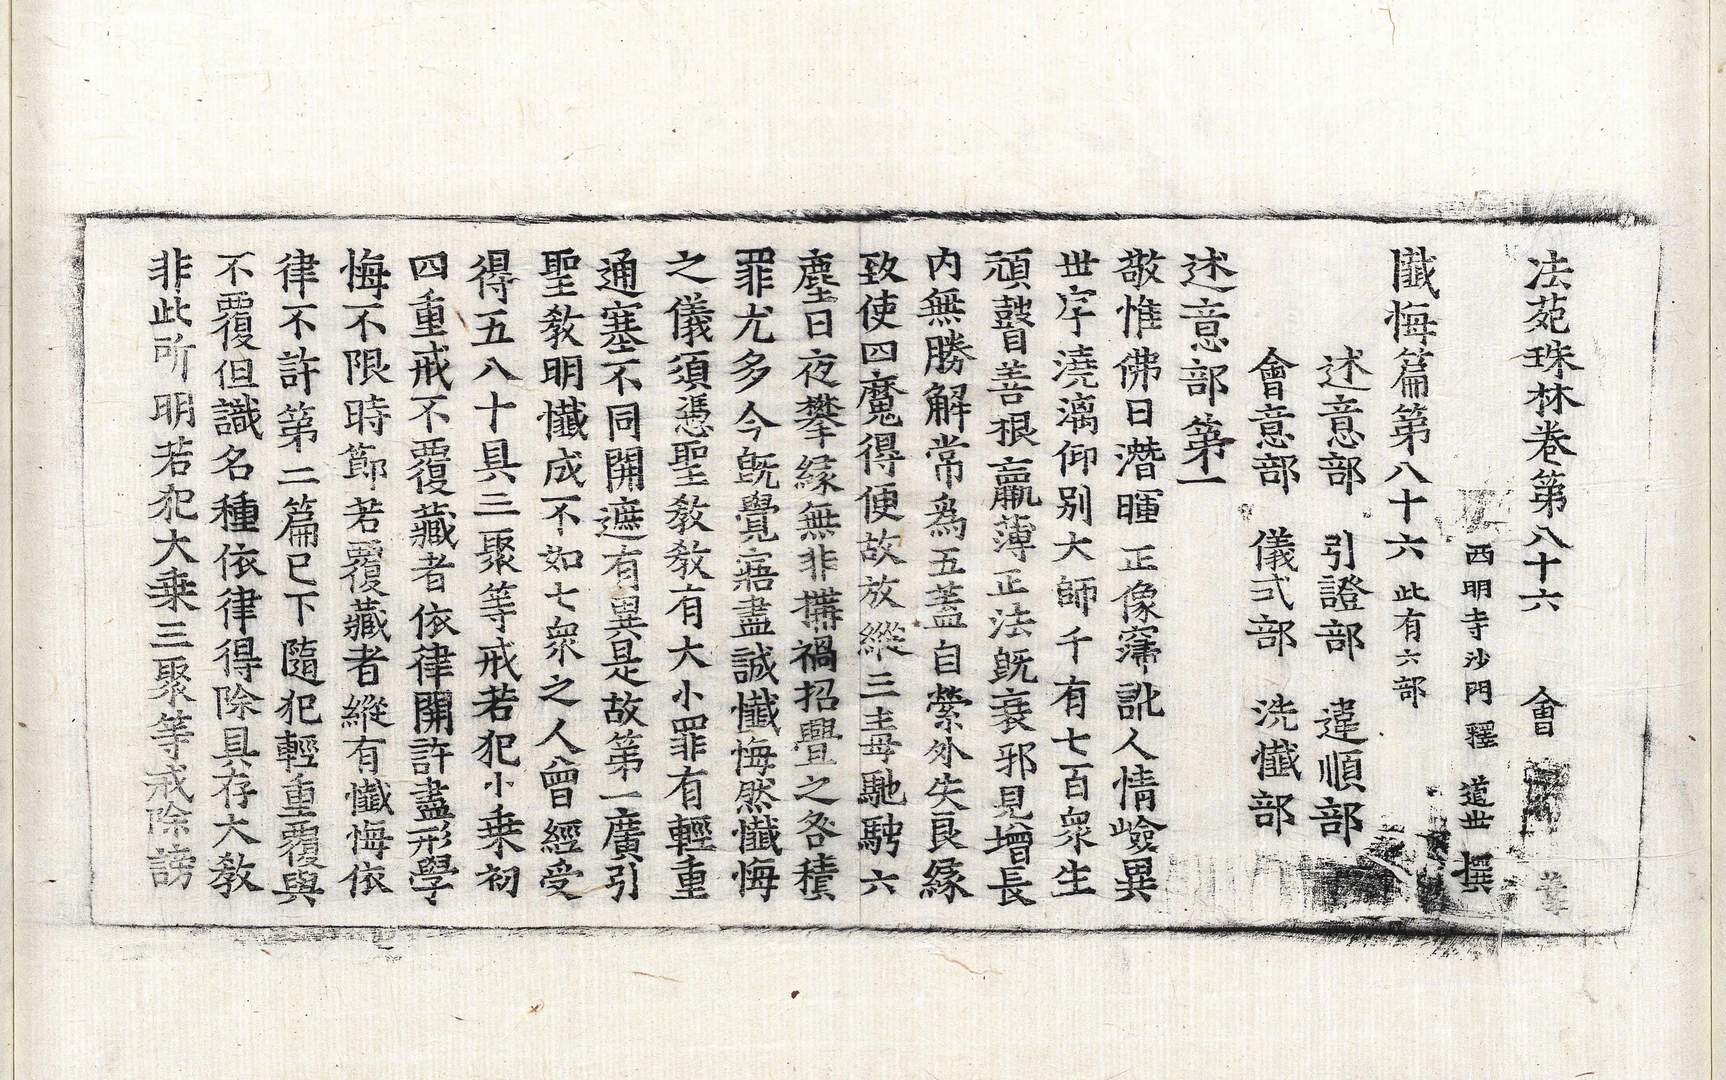 法苑珠林卷第八十六 會
西明寺沙門 釋 道世 撰
懺悔篇第八十六此有六部
述意部 引證部 違順部
會意部 儀式部 洗懺部
述意部第一
敬惟佛日潛暉正像寖訛人情嶮異
世序澆漓仰别大師千有七百衆生
頑瞽善根羸薄正法既衰邪見增長
内無勝解常爲五蓋自縈外失良緣
致使四魔得便故放縱三毒馳騁六
塵日夜攀緣無非搆禍招舋之咎積
罪尤多今既覺寤盡誠懺悔然懺悔
之儀須憑聖教教有大小罪有輕重
通塞不同開遮有異是故第一廣引
聖教明懺成不如七衆之人曾經受
得五八十具三聚等戒若犯小乗初
四重戒不覆藏者依律開許盡形學
悔不限時節若覆藏者縱有懺悔依
律不許第二篇已下隨犯輕重覆與
不覆但識名種依律得除具存大教
非此所明若犯大乗三聚等戒除謗